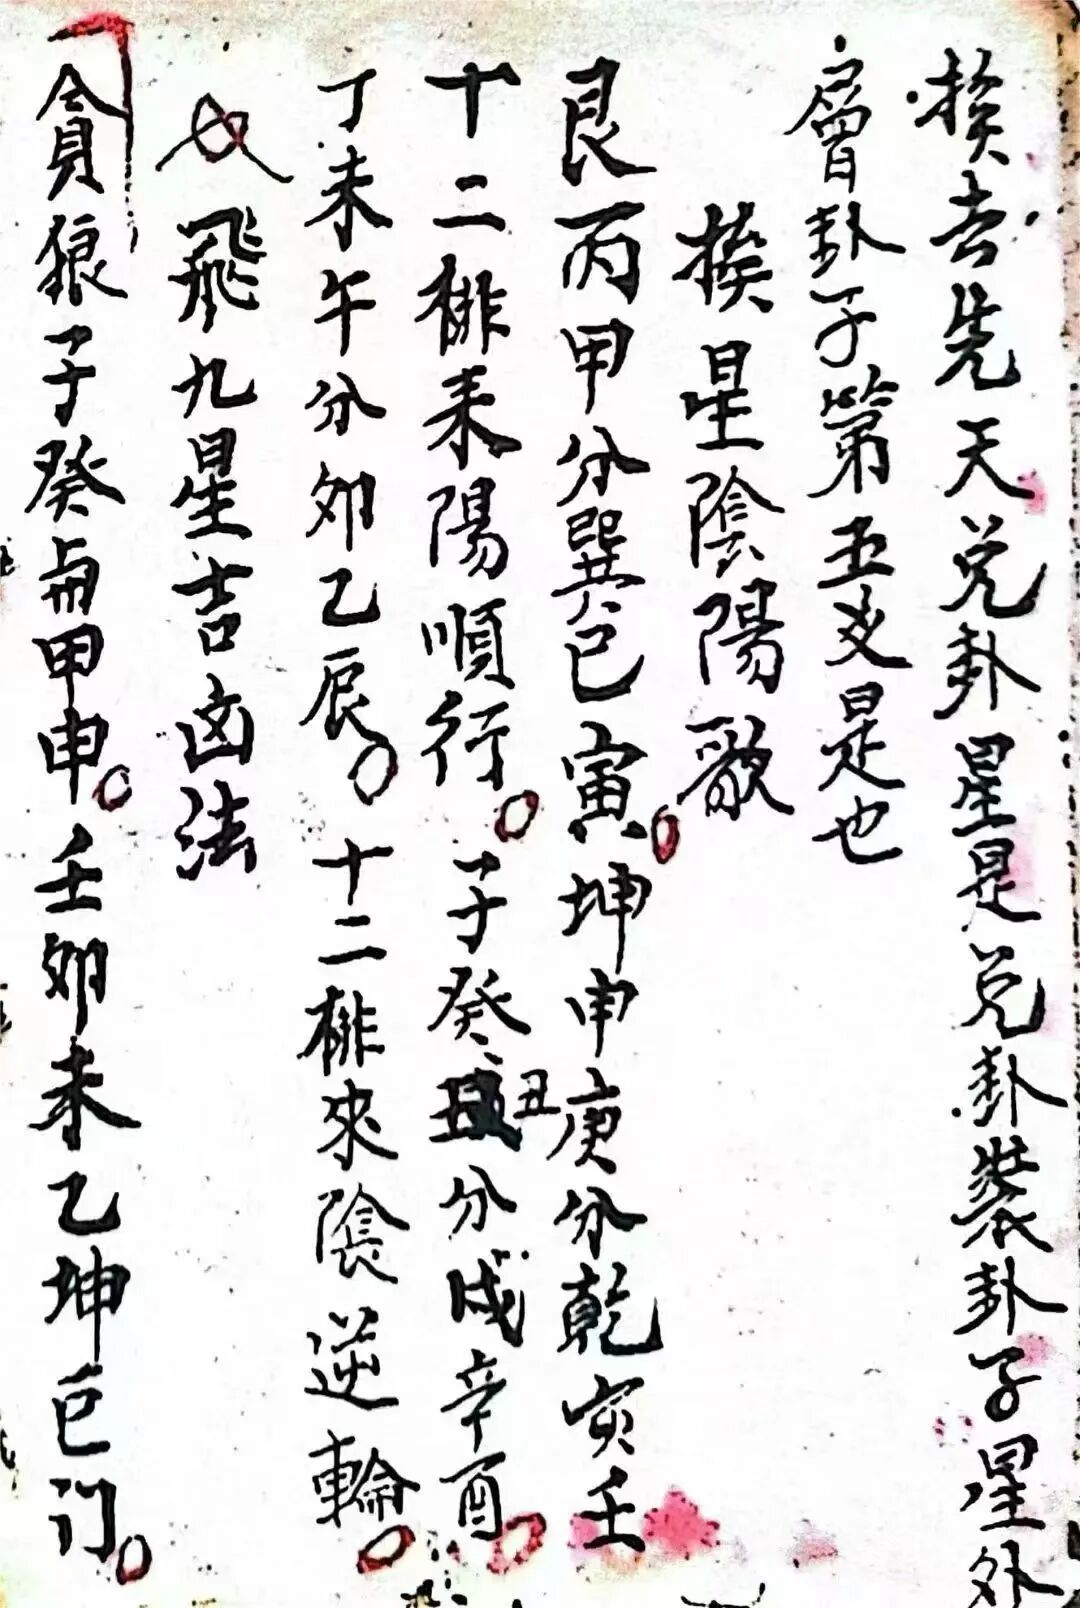 挨去先天兑卦星是兑卦裝卦子星外
層卦子第五爻是也
挨星陰陽歌
艮丙甲分巽巳寅。坤申庚分乾亥壬
十二排来陽順行。子癸丑分戌辛酉。
丁未午分卯乙辰。十二排來陰逆輪。
飛九星吉凶法
貪狼子癸甲申。壬卯未乙坤巨门。